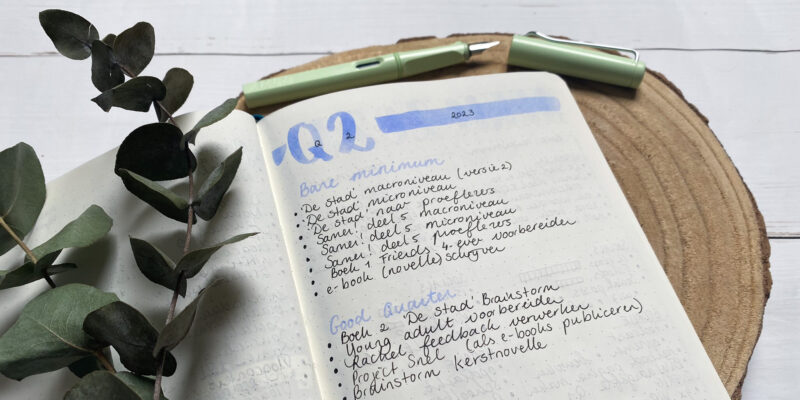 Q2
2023
Bare minimum
• 'De stad' macroniveau (versie 2)
• 'De stad' microniveau
• 'De stad' naar proeflezers
• Samen! deel 5 macroniveau
• Samen! deel 5 microniveau
• Samen! deel 5 proeflezers
• Boek 1 Friends 4-ever voorbereiden
• e-book (novelle) schrijven
Good Quarter
• Boek 2 'De stad' Brainstorm
• Young adult voorbereiden
• Rachel feedback verwerken
• Project Snel (als e-books publiceren)
• Brainstorm kerstnovelle